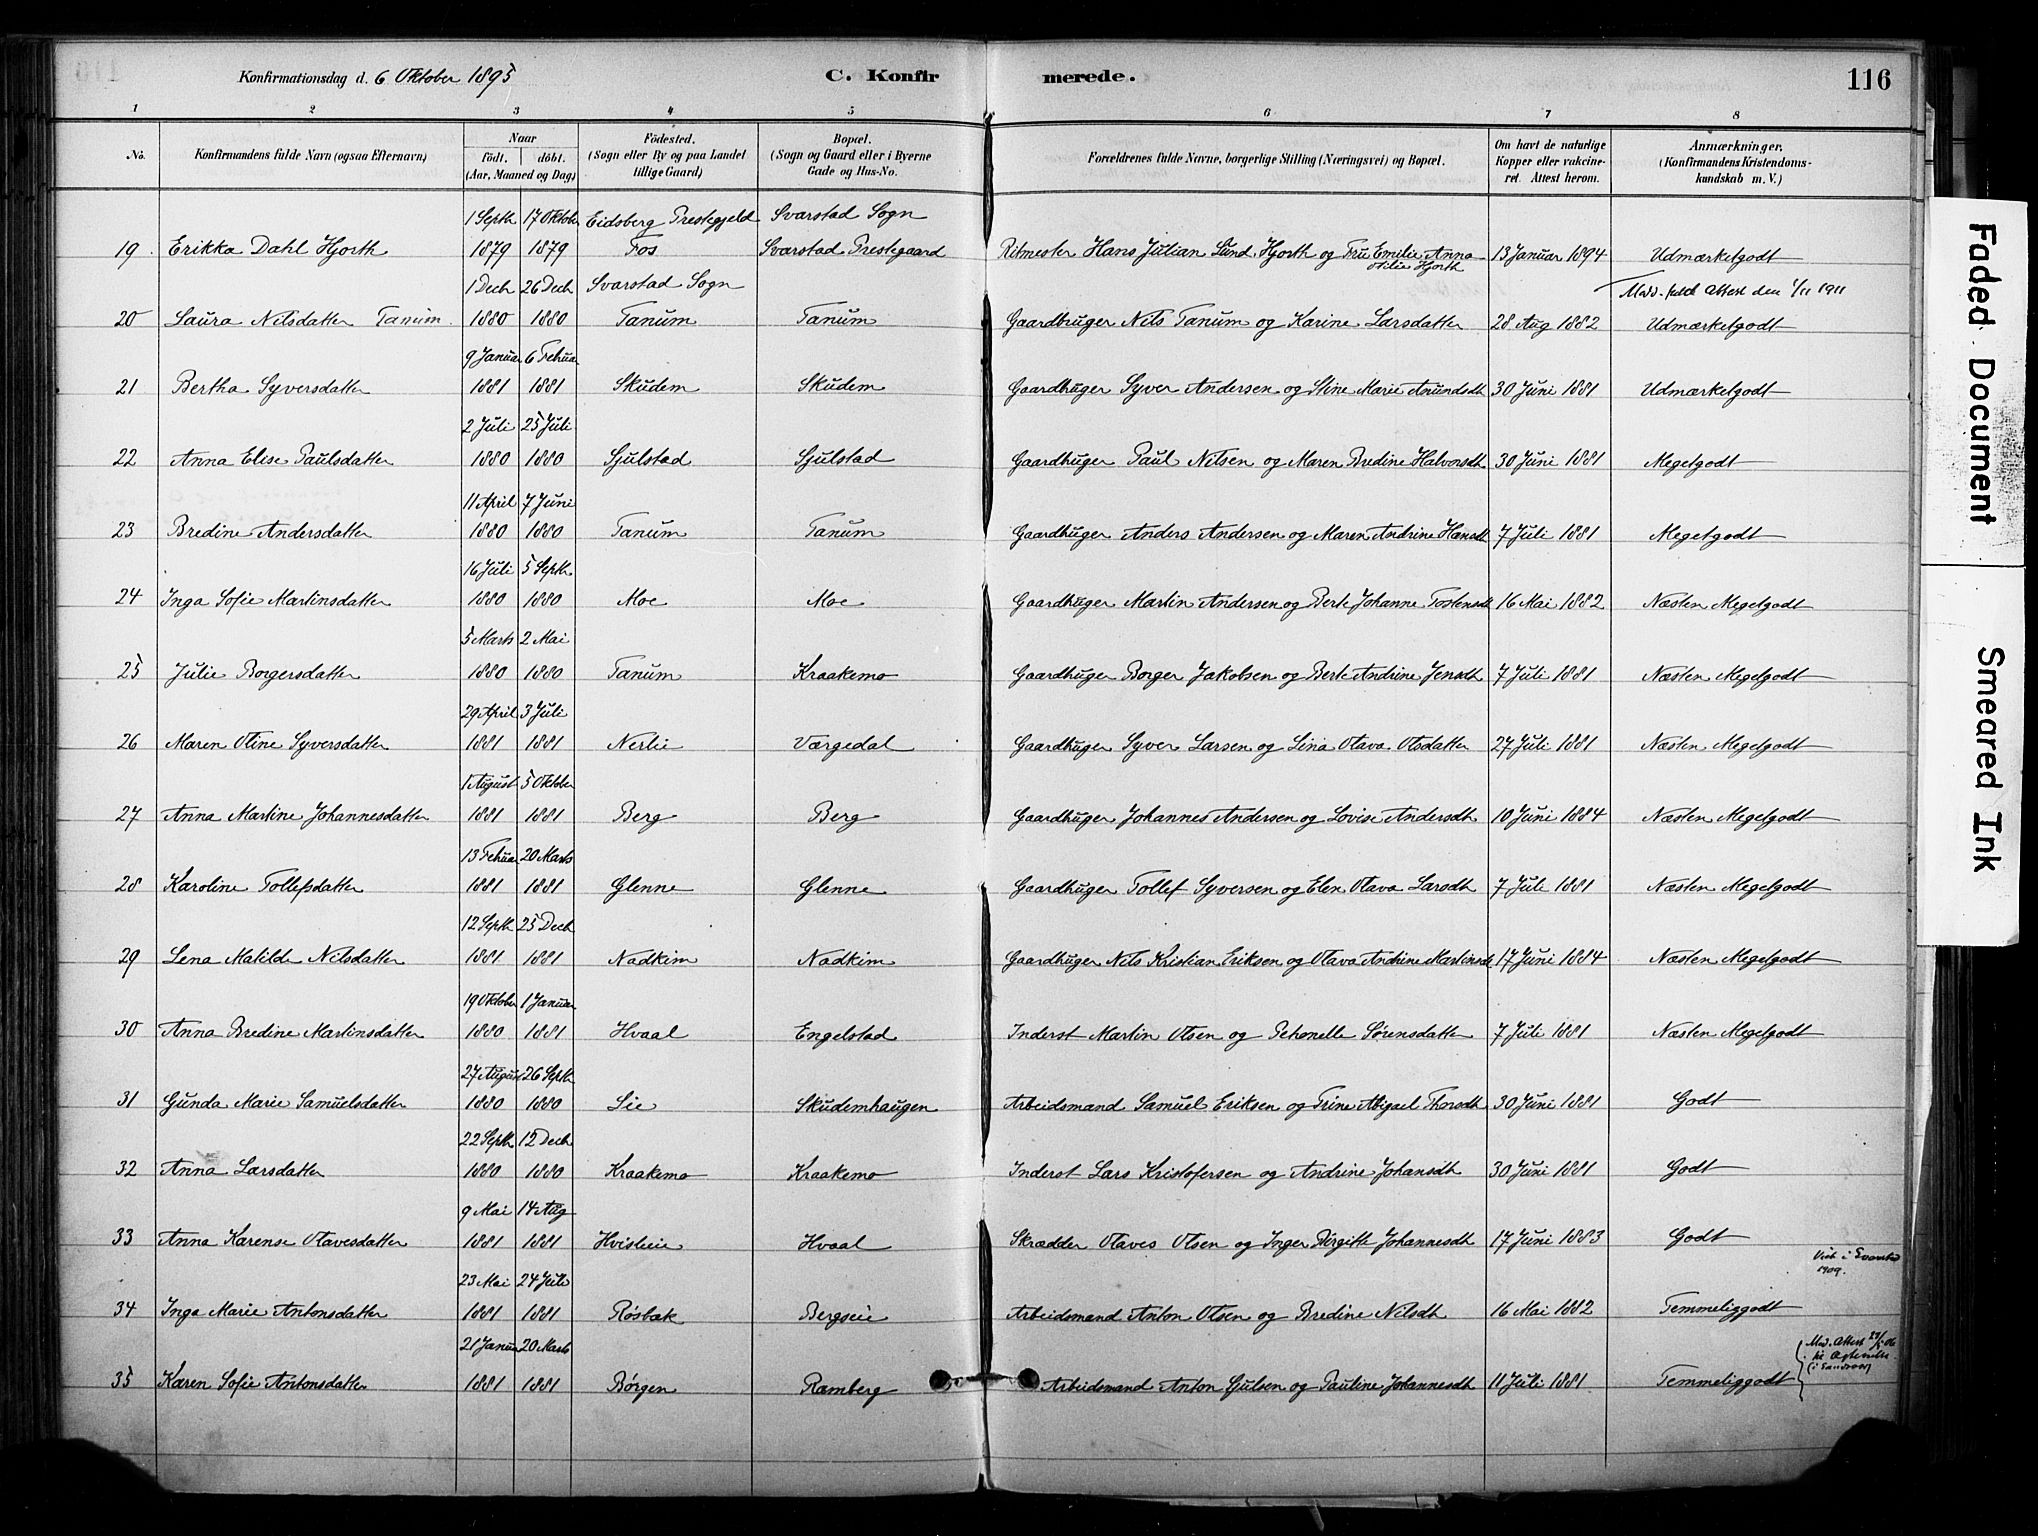 Konfirmationsdag d. 6 Oktober 1895
C. Konfir
merede.
116
1 2 3 4 5 6 7 8
No. Konfirmandens fulde Navn (ogsaa Efternavn) Naar Födt. döbt. (Aar, Maaned og Dag) Födested. (Sogn eller By og paa Landet tillige Gaard) Bopæl. (Sogn og Gaard eller i Byerne Gade og Hus-No. Forældrenes fulde Navne, borgerlige Stilling (Næringsvei) og Bopæl. Om havt de naturlige Kopper eller vakcineret. Attest herom. Anmærkninger. (Konfirmandens Kristendomskundskab m. V.)
1 Septb 17 Oktober Eidsberg Prestegjeld Svarstad Sogn
19. Erikka Dahl Hjorth 1879 1879 Fos Svarstad Prestegaard Ritmester Hans Julian Lund Hjorth og Fru Emilie Anna Otilie Hjorth 13 Januar 1894 Udmærketgodt
1 Decb 26 Decb Svarstad Sogn attest den 1/11 1911
20 Laura Nilsdatter Tanum 1880 1880 Tanum Tanum Gaardbruger Nils Tanum og Karine Larsdatter 28 Aug 1882 Udmærketgodt
9 Januar 6 Februar
21 Bertha Syversdatter 1881 1881 Skudem Skudem Gaardbruger Syver Andersen og Stine Marie Amundsdt 30 Juni 1881 Udmærketgodt
2 Juli 25 Juli
22 Anna Elise Paulsdatter 1880 1880 Gjulstad Gjulstad Gaardbruger Paul Nilsen og Maren Bredine Halvorsdt 30 Juni 1881 Megetgodt
11 April 7 Juni
23 Bredine Andersdatter 1880 1880 Tanum Tanum Gaardbruger Anders Andersen og Maren Andrine Hansdt 7 Juli 1881 Megetgodt
16 Juli 5 Septb
24 Inga Sofie Martinsdatter 1880 1880 Moe Moe Gaardbruger Martin Andersen og Berte Johanne Tostensdt 16 Mai 1882 Næsten Megetgodt
5 Marts 2 Mai
25 Julie Borgersdatter 1880 1880 Tanum Kraakemo Gaardbruger Borger Jakobsen og Berte Andrine Jensdt 7 Juli 1881 Næsten Megetgodt
29 April 3 Juli
26 Maren Otine Syversdatter 1881 1881 Nerlie Værgedal Gaardbruger Syver Larsen og Lina Olava Olsdatter 27 Juli 1881 Næsten Megetgodt
1 August 5 Oktober
27 Anna Martine Johannesdatter 1881 1881 Berg Berg Gaardbruger Johannes Andersen og Lovise Andersdt 10 Juni 1884 Næsten Megetgodt
13 Februar 20 Marts
28 Karoline Tollefsdatter 1881 1881 Glenne Glenne Gaardbruger Tollef Syversen og Elen Olava Larsdt 7 Juli 1881 Næsten Megetgodt
12 Septb 25 Decb
29 Lena Matilde Nilsdatter 1881 1881 Nadkim Nadkim Gaardbruger Nils Kristian Eriksen og Olava Andrine Martinsdt 17 Juni 1884 Næsten Megetgodt
19 Oktober 1 Januar
30 Anna Bredine Martinsdatter 1880 1881 Hvaal Engelstad Inderst Martin Olsen og Petronelle Sørensdatter 7 Juli 1881 Næsten Megetgodt
27 August 26 Septb
31 Gunda Marie Samuelsdatter 1880 1880 Lie Skudemhaugen Arbeidsmand Samuel Eriksen og Trine Abigael Thorsdt 30 Juni 1881 Godt
22 Septb 12 Decb
32 Anna Larsdatter 1880 1880 Kraakemo Kraakemo Inderst Lars Kristofersen og Andrine Johansdt 30 Juni 1881 Godt
9 Mai 14 Aug
33 Anna Karense Olavesdatter 1881 1881 Hvisleie Hvaal Skrædder Olaves Olsen og Inger Birgitte Johannesdt 17 Juni 1883 Godt
23 Mai 24 Juli Viet i Svarstad 1909.
34 Inga Marie Antonsdatter 1881 1881 Røsbæk Bergseie Arbeidsmand Anton Olsen og Bredine Nilsdt 16 Mai 1882 Temmeliggodt
21 Januar 20 Marts
35 Karen Sofie Antonsdatter 1881 1881 Børgen Ramberg Arbeidsmand Anton Gjulsen og Pauline Johannesdt 11 Juli 1881. Temmeliggodt
Faded Document
Smeared Ink